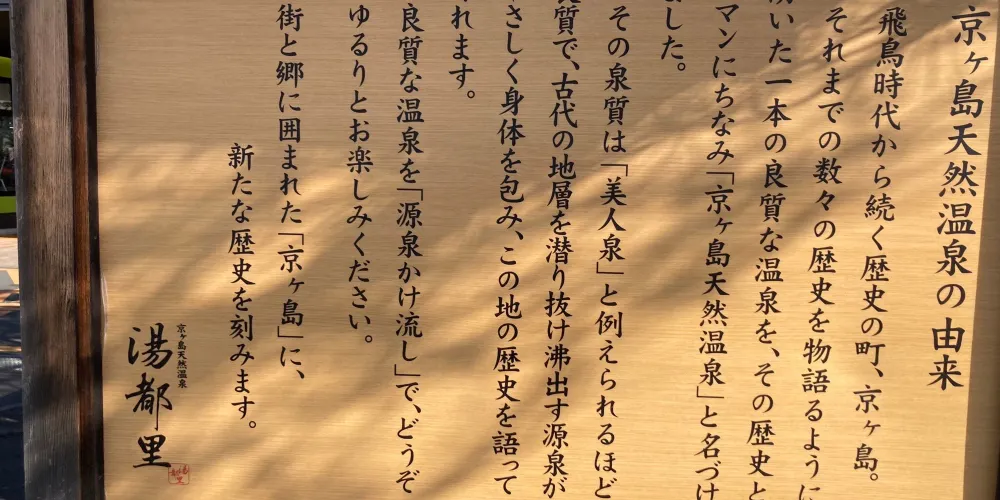 京ヶ島天然温泉の由来
飛鳥時代から続く歴史の町、京ヶ島。
それまでの数々の歴史を物語るように
いた一本の良質な温泉を、その歴史と
マンにちなみ「京ヶ島天然温泉」と名づけ
ました。
その泉質は「美人泉」と例えられるほど
良質で、古代の地層を潜り抜け沸出す源泉が
さしく身体を包み、この地の歴史を語って
れます。
良質な温泉を「源泉かけ流し」で、どうぞ
ゆるりとお楽しみください。
街と郷に囲まれた「京ヶ島」に、
新たな歴史を刻みます。
京ヶ島天然温泉
湯都里